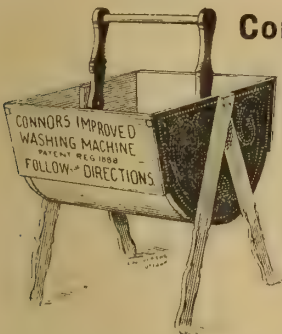 Con
CONNORS IMPROVED
WASHING MACHINE
PATENT REG 1880
FOLLOW THE DIRECTIONS